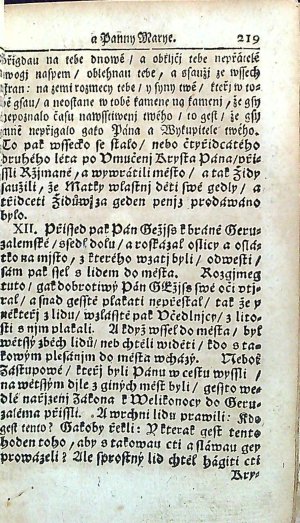 a Panny Marye. 219
Přigdau na tebe dnowé / a obkljčj tebe nepřátelé
twogj naspem / oblehnau tebe / a sſaužj ze wſſech
ſtran: na zemi rozmecy tebe / y ſyny twé / kteřj w to-
bě gſau / a neoſtane w tobě kamene na kameni / že gſy
nepoznalo čaſu nawſſtiwenj twého / to geſt / že gſy
mně nepřigalo gako Pána a Wykupitele twého.
To pak wſſecko ſe ſtalo / nebo čtyřidcátého
druhého léta po Vmučenj Kryſta Pána / při-
ſſli Ržjmané / a wywrátili měſto / a tak Židy
ſaužili / že Matky wlaſtnj děti ſwé gedly / a
třidceti Židůw za geden penjz prodáwáno
bylo.
XII. Přiſſed pak Pán Gežjſs k bráně Geru-
zalemſké / ſſedſſ dolu / a rozkázal oſlicy a oſlá-
tko na mjſto / z kterého wzatj byli / odweſti /
ſám pak ſſel s lidem do měſta. Rozgjmeg
tuto / gak dobrotiwý Pán GEžjſs ſwé oči vtj-
ral / a ſnad geſſtě plakati nepřeſtal / tak že y
někteřj z lidu / wzláſſtě pak Včedlnjcy / z lito-
ſti s njm plakali. A když wſſel do měſta / byl
wětſſý zběh lidů / neb chtěli widěti / kdo s ta-
kowým pleſánjm do měſta wcházý. Neboť
Záſtupowé / kteřj byli Pánu w ceſtu wyſſli /
na wětſſým djle z giných měſt byli / geſſto we-
dlé nařjzenj Zákona k Welikonocy do Geru-
zaléma přiſſli. A wrchnj lidu prawili: Kdo
geſt tento? Gakoby řekli: Y kterak geſt tento
hoden toho / aby s takowau ctj a ſláwau gey
prowázeli? Ale ſproſtný lid chtěl hágiti cti
Kry-